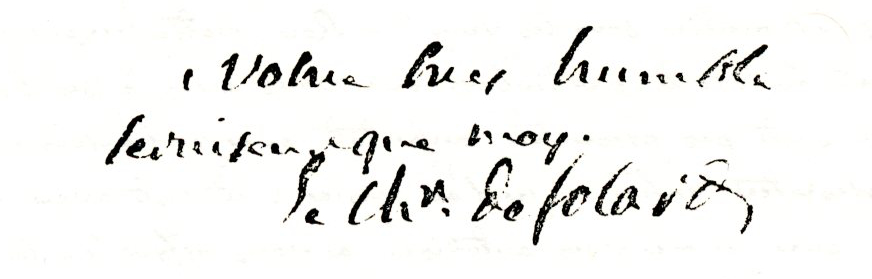 Votre tres humble
serviteur que moy.
Le Chr. de folard